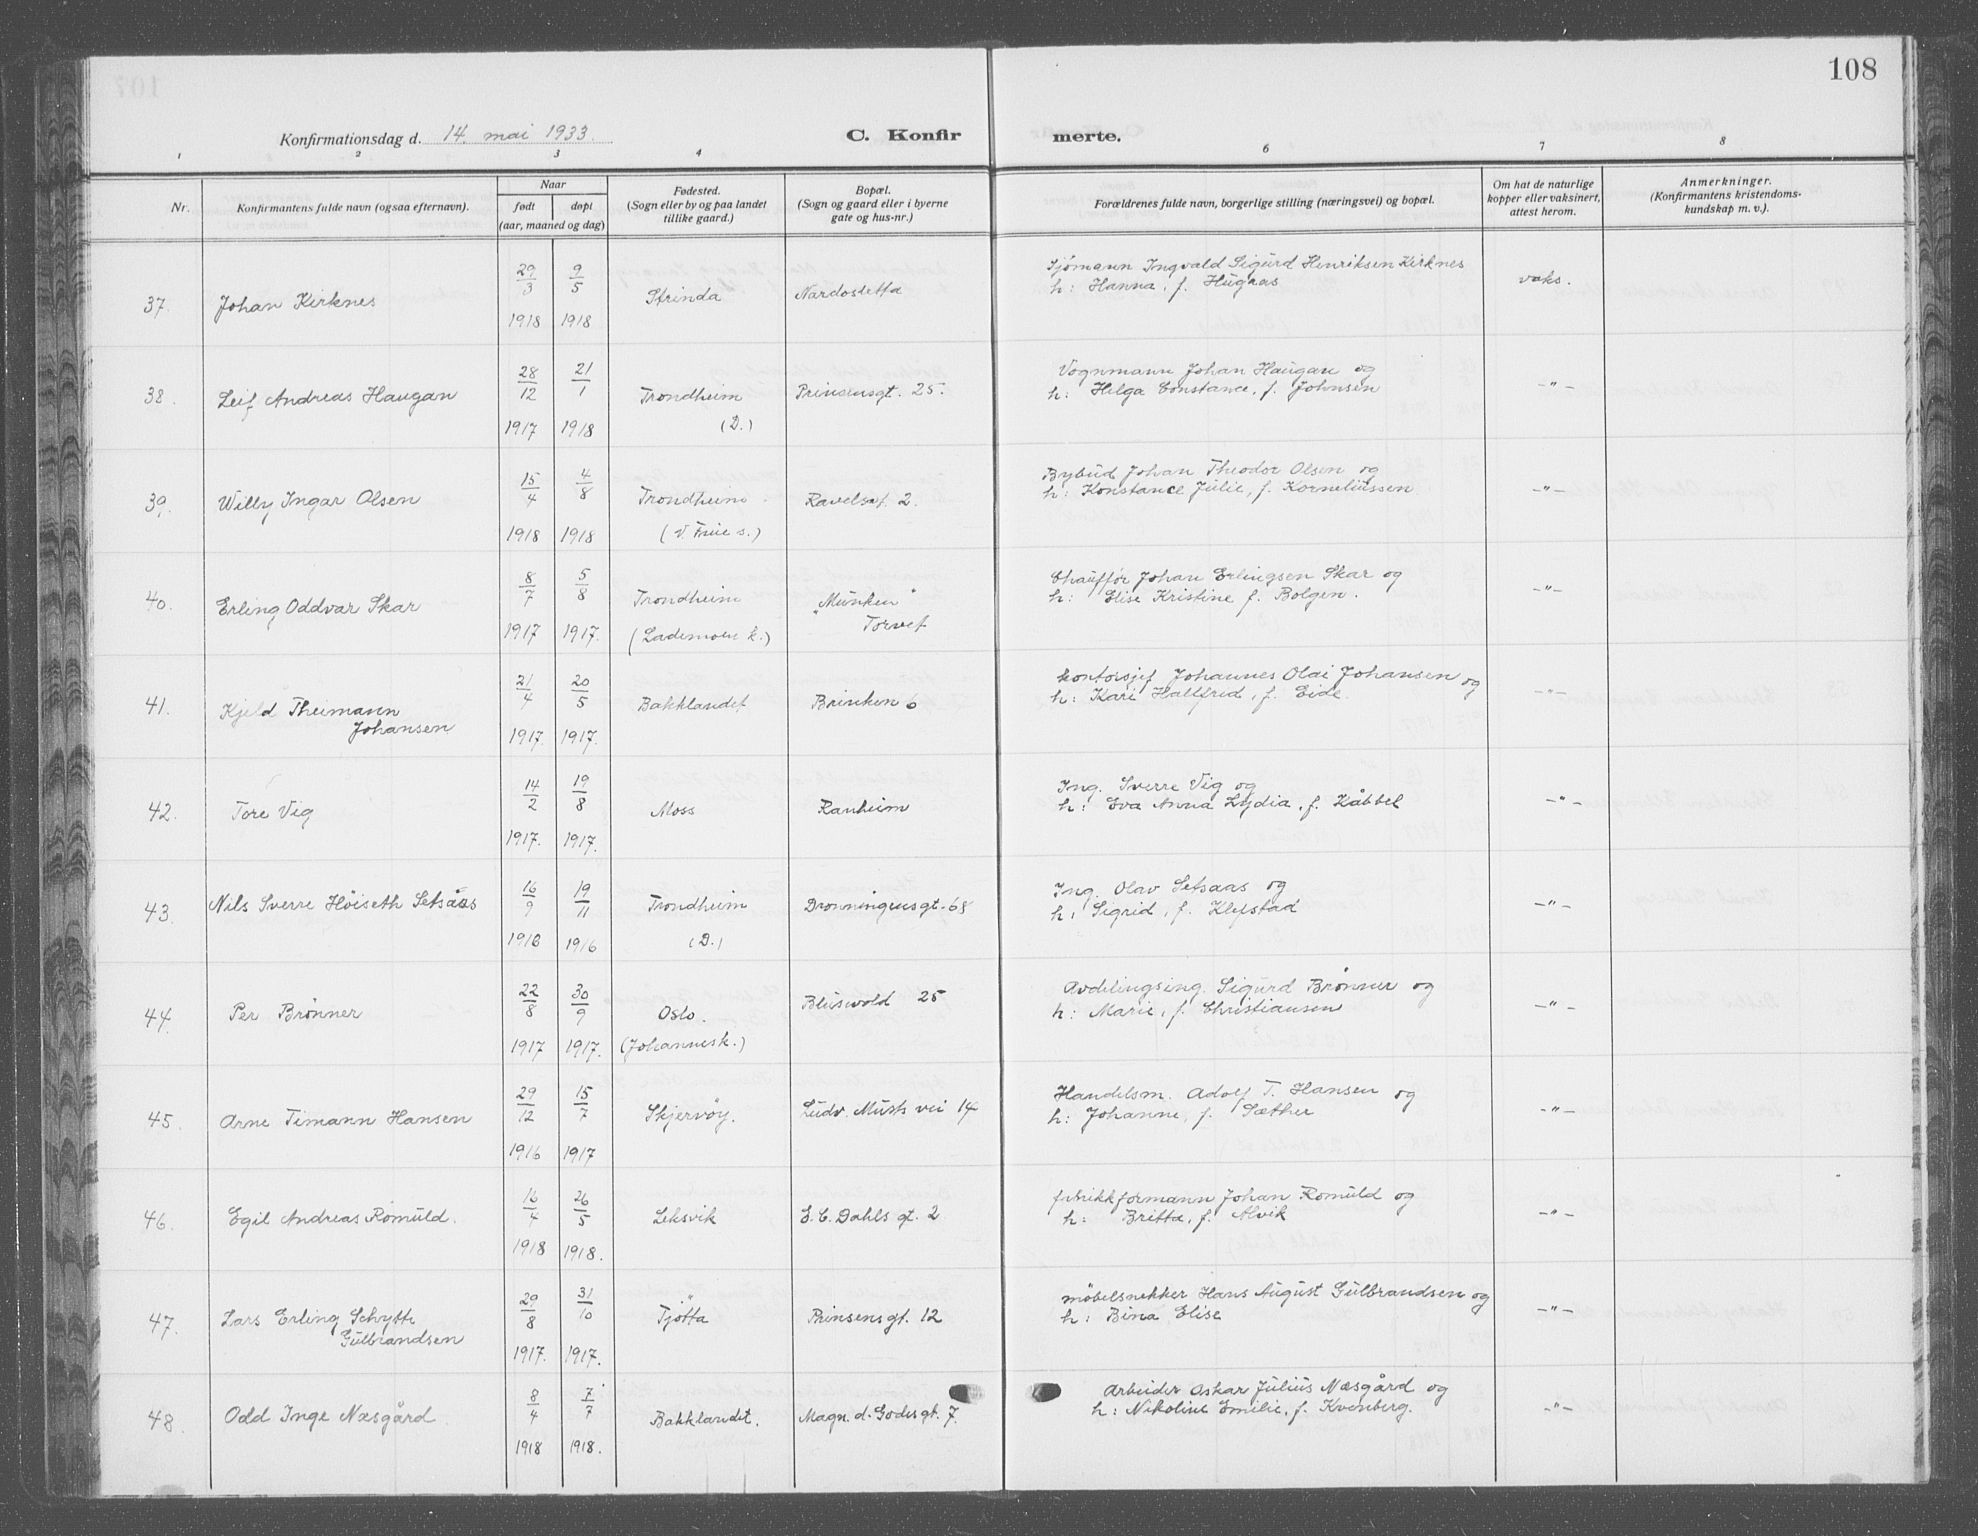 108
Konfirmationsdag d. 14. mai 1933.
C. Konfirmerte.
1 2 3 4 6 7 8
Nr.
Konfirmantens fulde navn (ogsaa efternavn).
Naar
født døpt
(aar, maaned og dag)
Fødested.
(Sogn eller by og paa landet
tillike gaard.)
Bopæl.
(Sogn og gaard eller i byerne
gate og hus-nr.)
Forældrenes fulde navn, borgerlige stilling (næringsvei) og bopæl.
Om hat de naturlige
kopper eller vaksinert,
attest herom.
Anmerkninger.
(Konfirmantens kristendoms-
kundskap m. v.).
37. Johan Kirknes 29/3 1918 9/5 1918 Strinda Nardosletta
Sjømann Ingvald Sigurd Henriksen Kirknes
h: Hanna, f. Hugaas
vaks.
38. Leif Andreas Haugan 28/12 1917 21/1 1918 Trondheim (D.) Prinsensgt. 25.
Vognmann Johan Haugan og
h: Helga Constance, f. Johnsen
-"-
39. Willy Ingar Olsen 15/4 1918 4/8 1918 Trondheim (V. Frue s.) Ravelsvt. 2.
Bybud Johan Theodor Olsen og
h: Konstance Julie, f. Korneliussen
-"-
40. Erling Oddvar Skar 8/7 1917 5/8 1917. Trondheim (Lademoen k.) "Munken" Torvet
Chauffør Johan Erlingsen Skar og
h: Elise Kristine f. Bolgen.
-"-
41. Kjeld Theimann Johansen 21/4 1917. 20/5 1917. Bakklandet Brinken 6
kontorsjef Johannes Olai Johansen og
h: Kari Hallfrid, f. Eide.
-"-
42. Tore Vig 14/2 1917. 19/8 1917. Moss Ranheim
Ing. Sverre Vig og
h: Eva Anna Lydia, f. Kåbbel
-"-
43. Nils Sverre Høiseth Setsaas 16/9 1916 19/11 1916 Trondheim (D.) Dronningensgt. 68
Ing. Olav Setsaas og
h: Sigrid, f. Klefstad
-"-
44. Per Brønner 22/8 1917 30/9 1917. Oslo. (Johannesk.) Blusvold 25
Avdelingsing. Sigurd Brønner og
h: Marie, f. Christiansen
-"-
45. Arne Timann Hansen 29/12 1916 15/7 1917 Skjervøy. Ludv. Musts vei 14
Handelsm. Adolf T. Hansen og
h: Johanne, f. Sæther
-"-
46. Egil Andreas Romuld. 16/4 1918 26/5 1918. Leksvik E. C. Dahls gt. 2
fabrikkformann Johan Romuld og
h: Britta, f. Alvik
-"-
47. Lars Erling Schytte Gulbrandsen 29/8 1917. 31/10 1917. Tjøtta Prinsensgt. 12
møbelsnekker Hans August Gulbrandsen og
h: Bina Elise
-"-
48. Odd Inge Næsgård 8/4 1918 7/7 1918. Bakklandet. Magn. d. Godes gt. 7.
Arbeider Oskar Julius Næsgård og
h: Nikoline Emilie, f. Kvenberg.
-"-